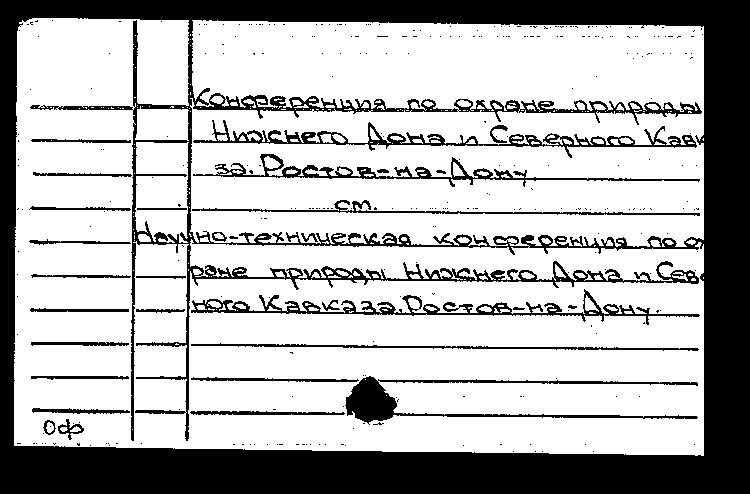 Конференция по охране природы
Нижнего Дона и Северного Кавк
за. Ростов-на-Дону.
см.
Научно-техническая конференция по ох
ране природы Нижнего Дона и Севе
ного Кавказа. Ростов-на-Дону.
Оф